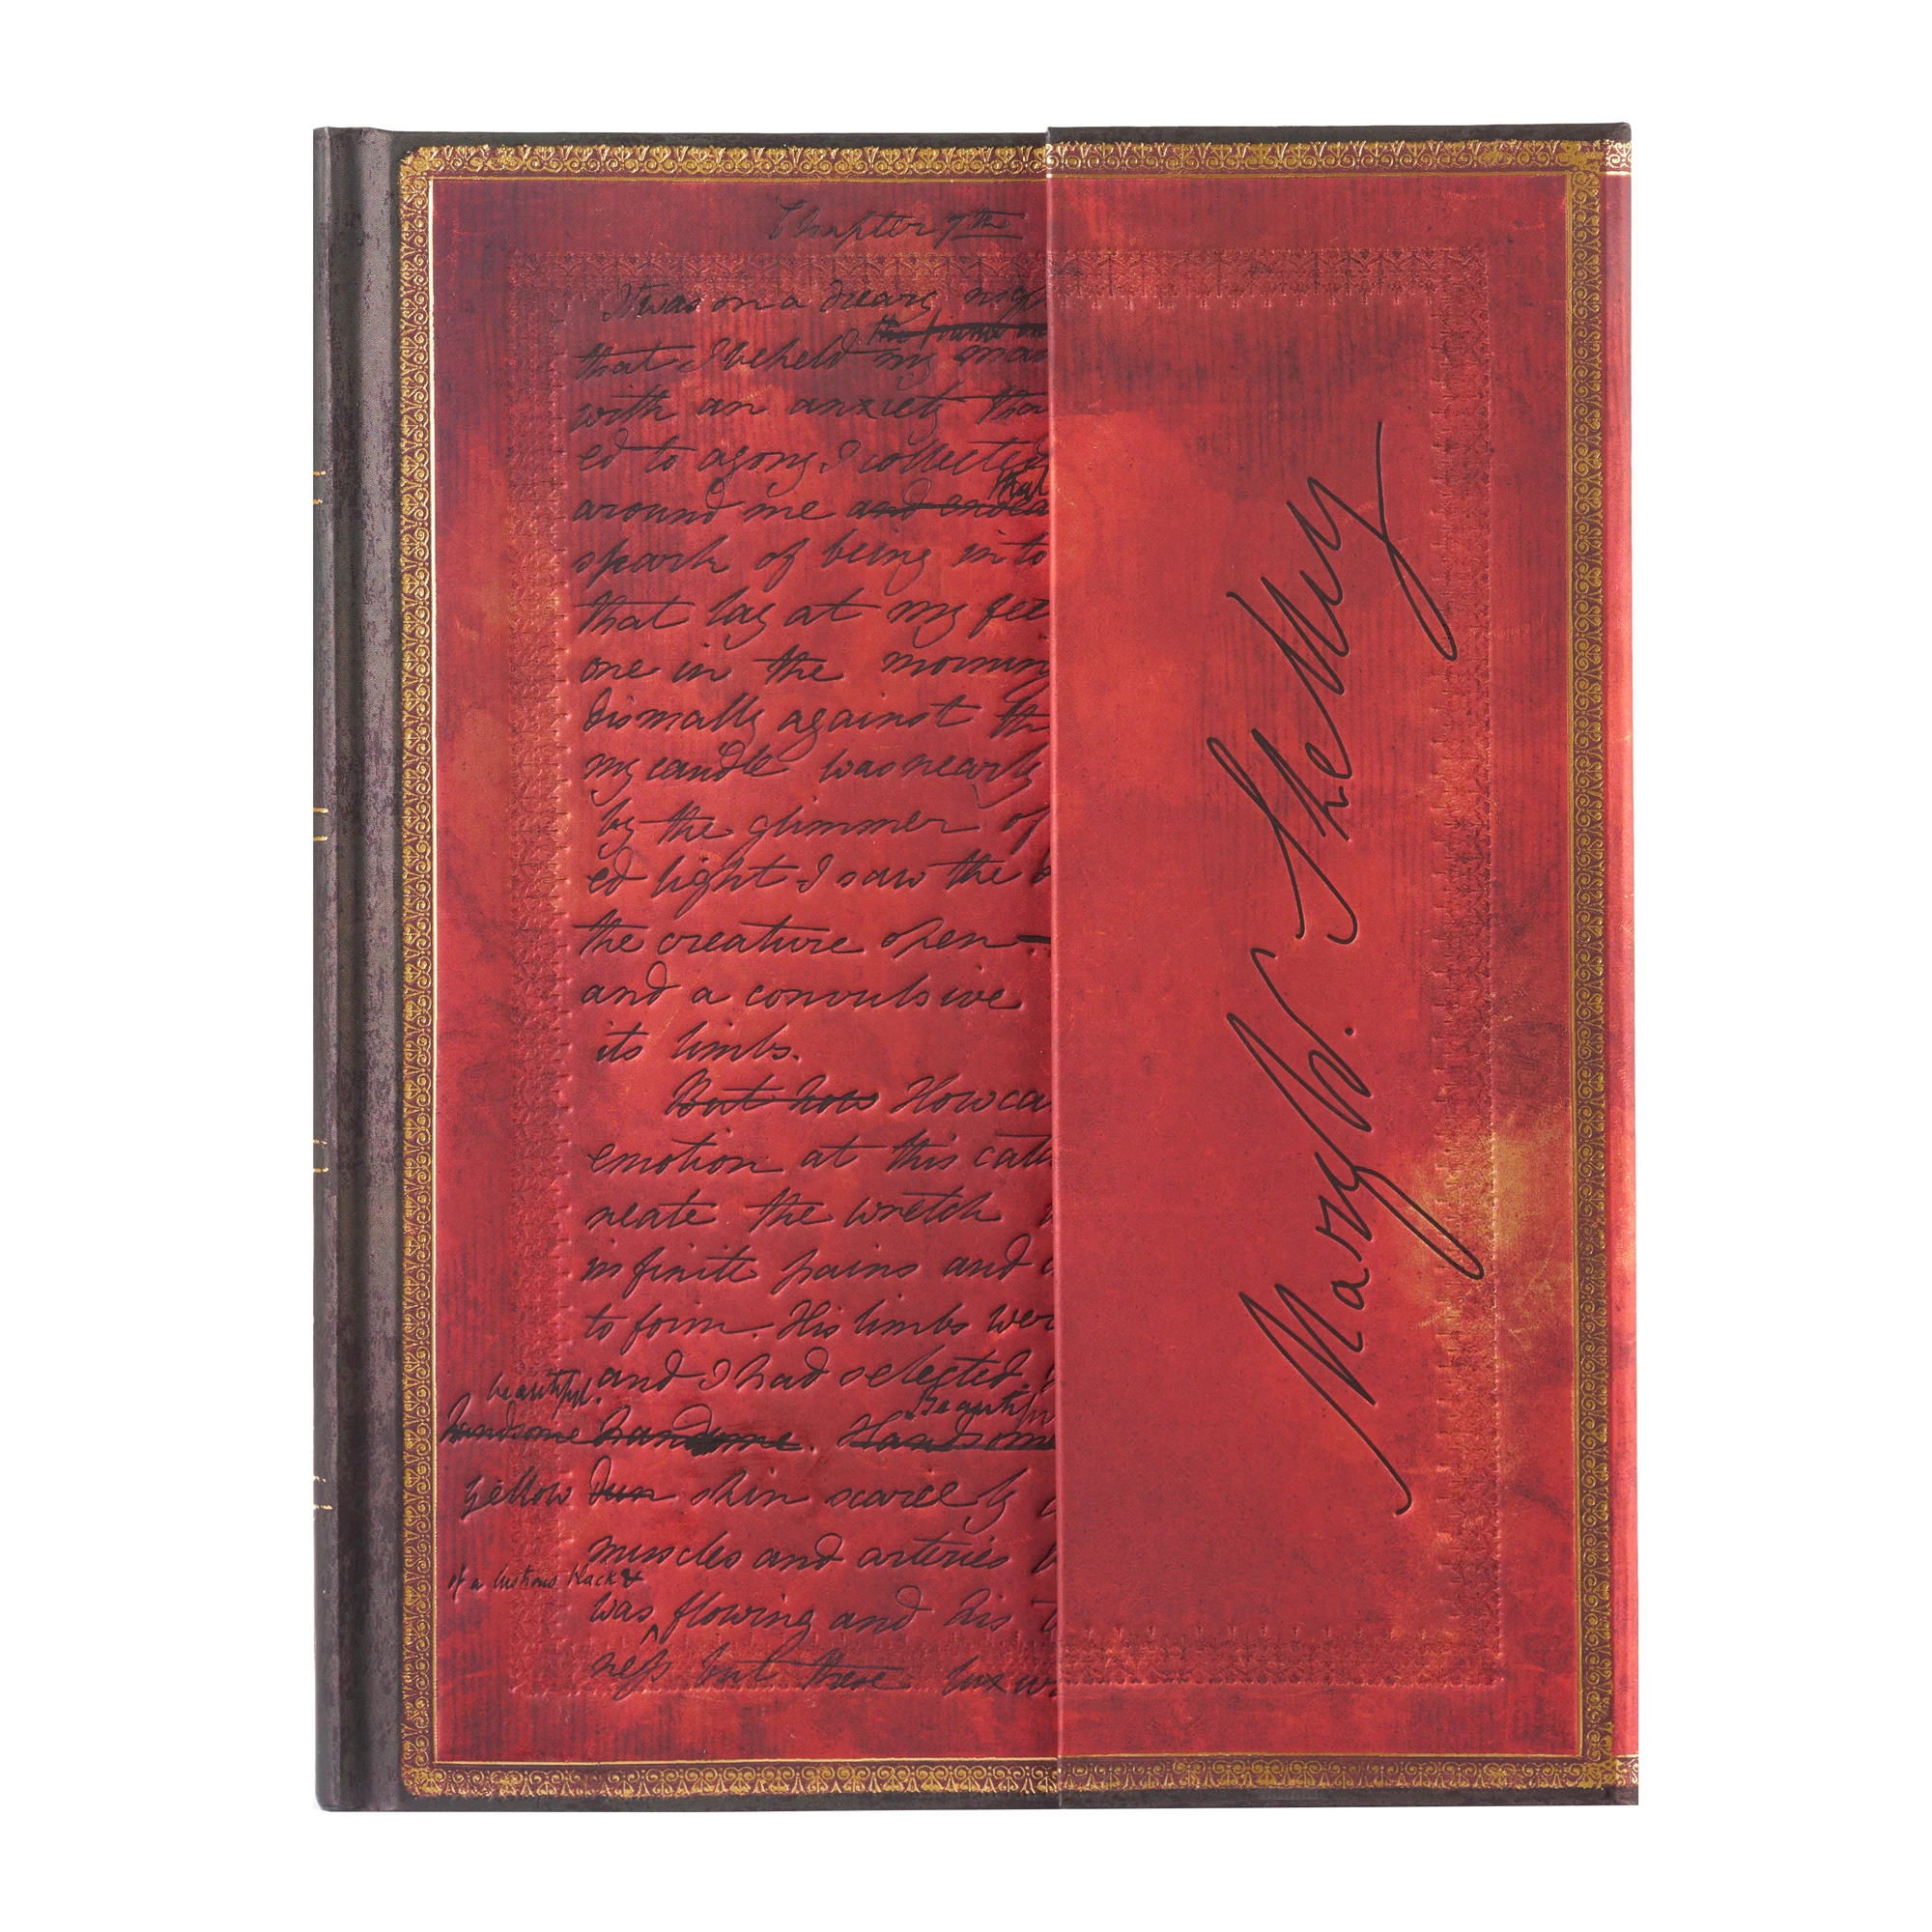 Chapter 7th
It was on a dreary nigh
the frame on
that I beheld my man
with an anxiety that
ed to agony I collected
that
around me and endea
spark of being into
that lay at my fee
one in the mornin
dismally against th
my candle was nearly
by the glimmer of
ed light I saw the
the creature open
and a convulsive
its limbs.
But how How ca
emotion at this cat
neate the wretch
infinite pains and
to form. His limbs wer
and I had selected
beautiful. Beautifu
handsome handsome. Handsome
yellow dun skin scarcely
muscles and arteries
of a lustrous black &
was flowing and his t
ness but these luxur
Mary W. Shelley